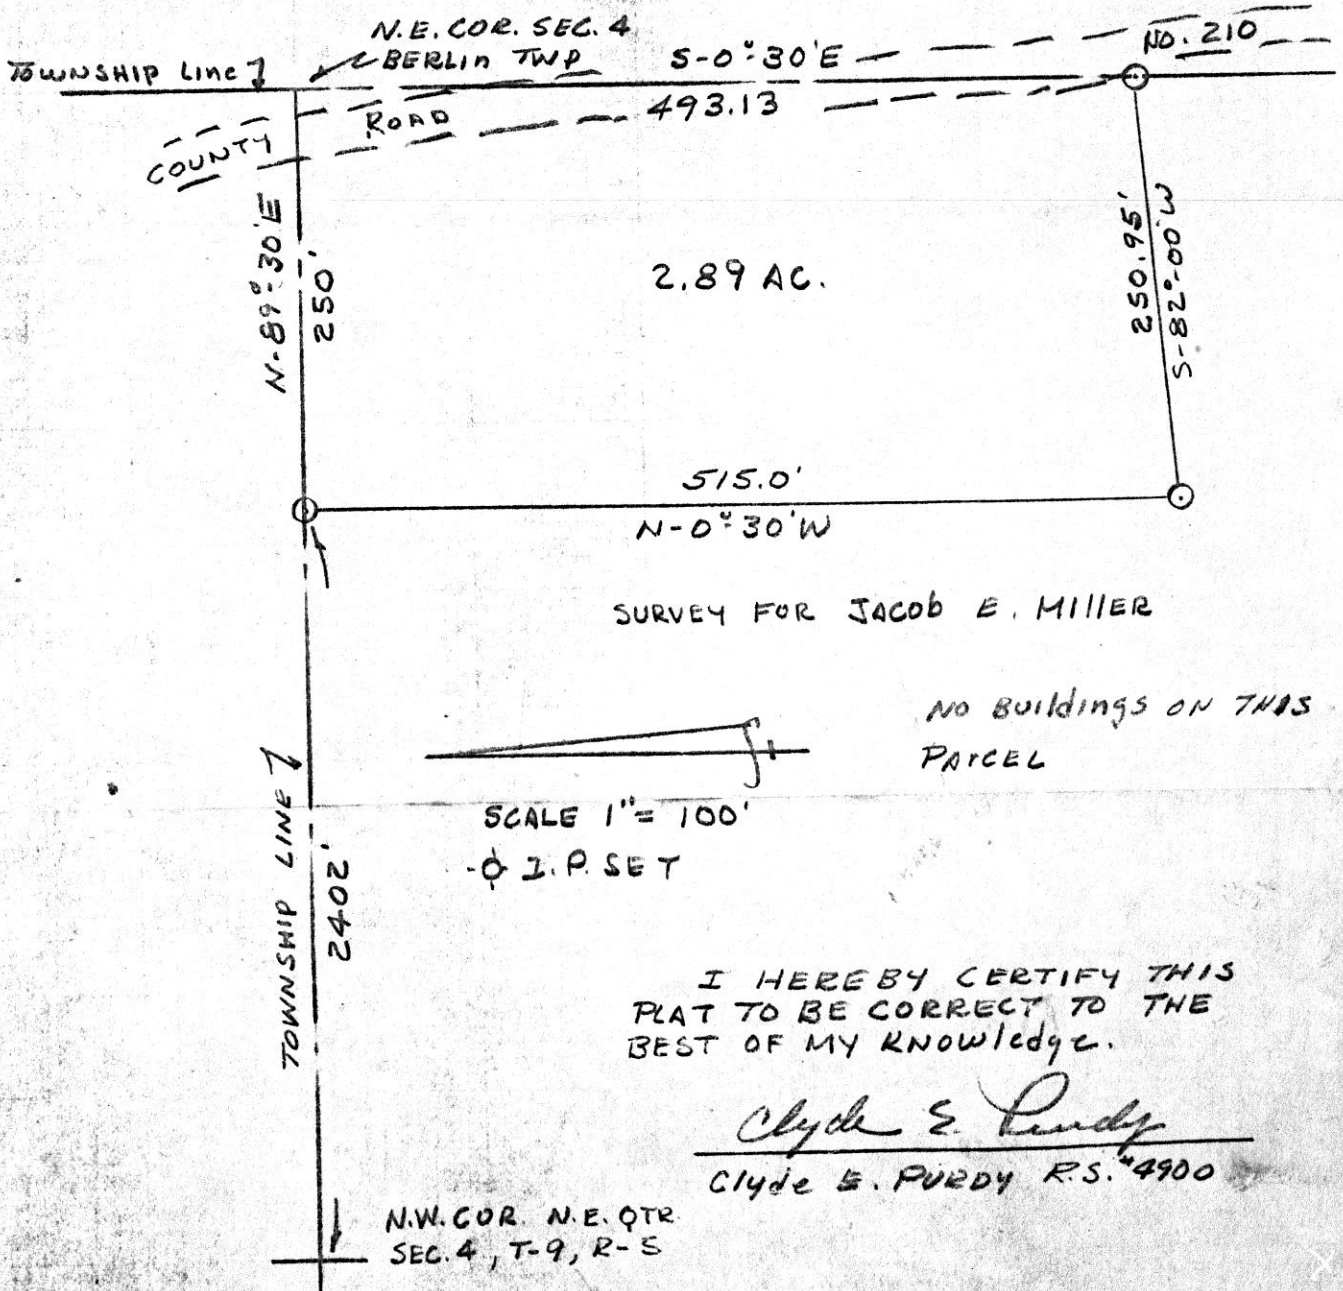 N.E. COR. SEC. 4
BERLIN TWP
TOWNSHIP LINE
S-0°30'E
NO. 210
493.13
COUNTY ROAD
N-89°30'E
250'
2.89 AC.
250.95'
S-82°-00'W
515.0'
N-0°30'W
SURVEY FOR JACOb E. MIllER
NO BuildINgs ON THIS
PArCEL
SCALE 1"= 100'
I.P. SET
TOWNSHIP LINE
2402'
I HEREBY CERTIFY THIS
PLAT TO BE CORRECT TO THE
BEST OF MY KNOWledge.
Clyde E. Purdy
Clyde E. PURDY R.S. #4900
N.W. COR. N.E. QTR
SEC. 4, T-9, R-5